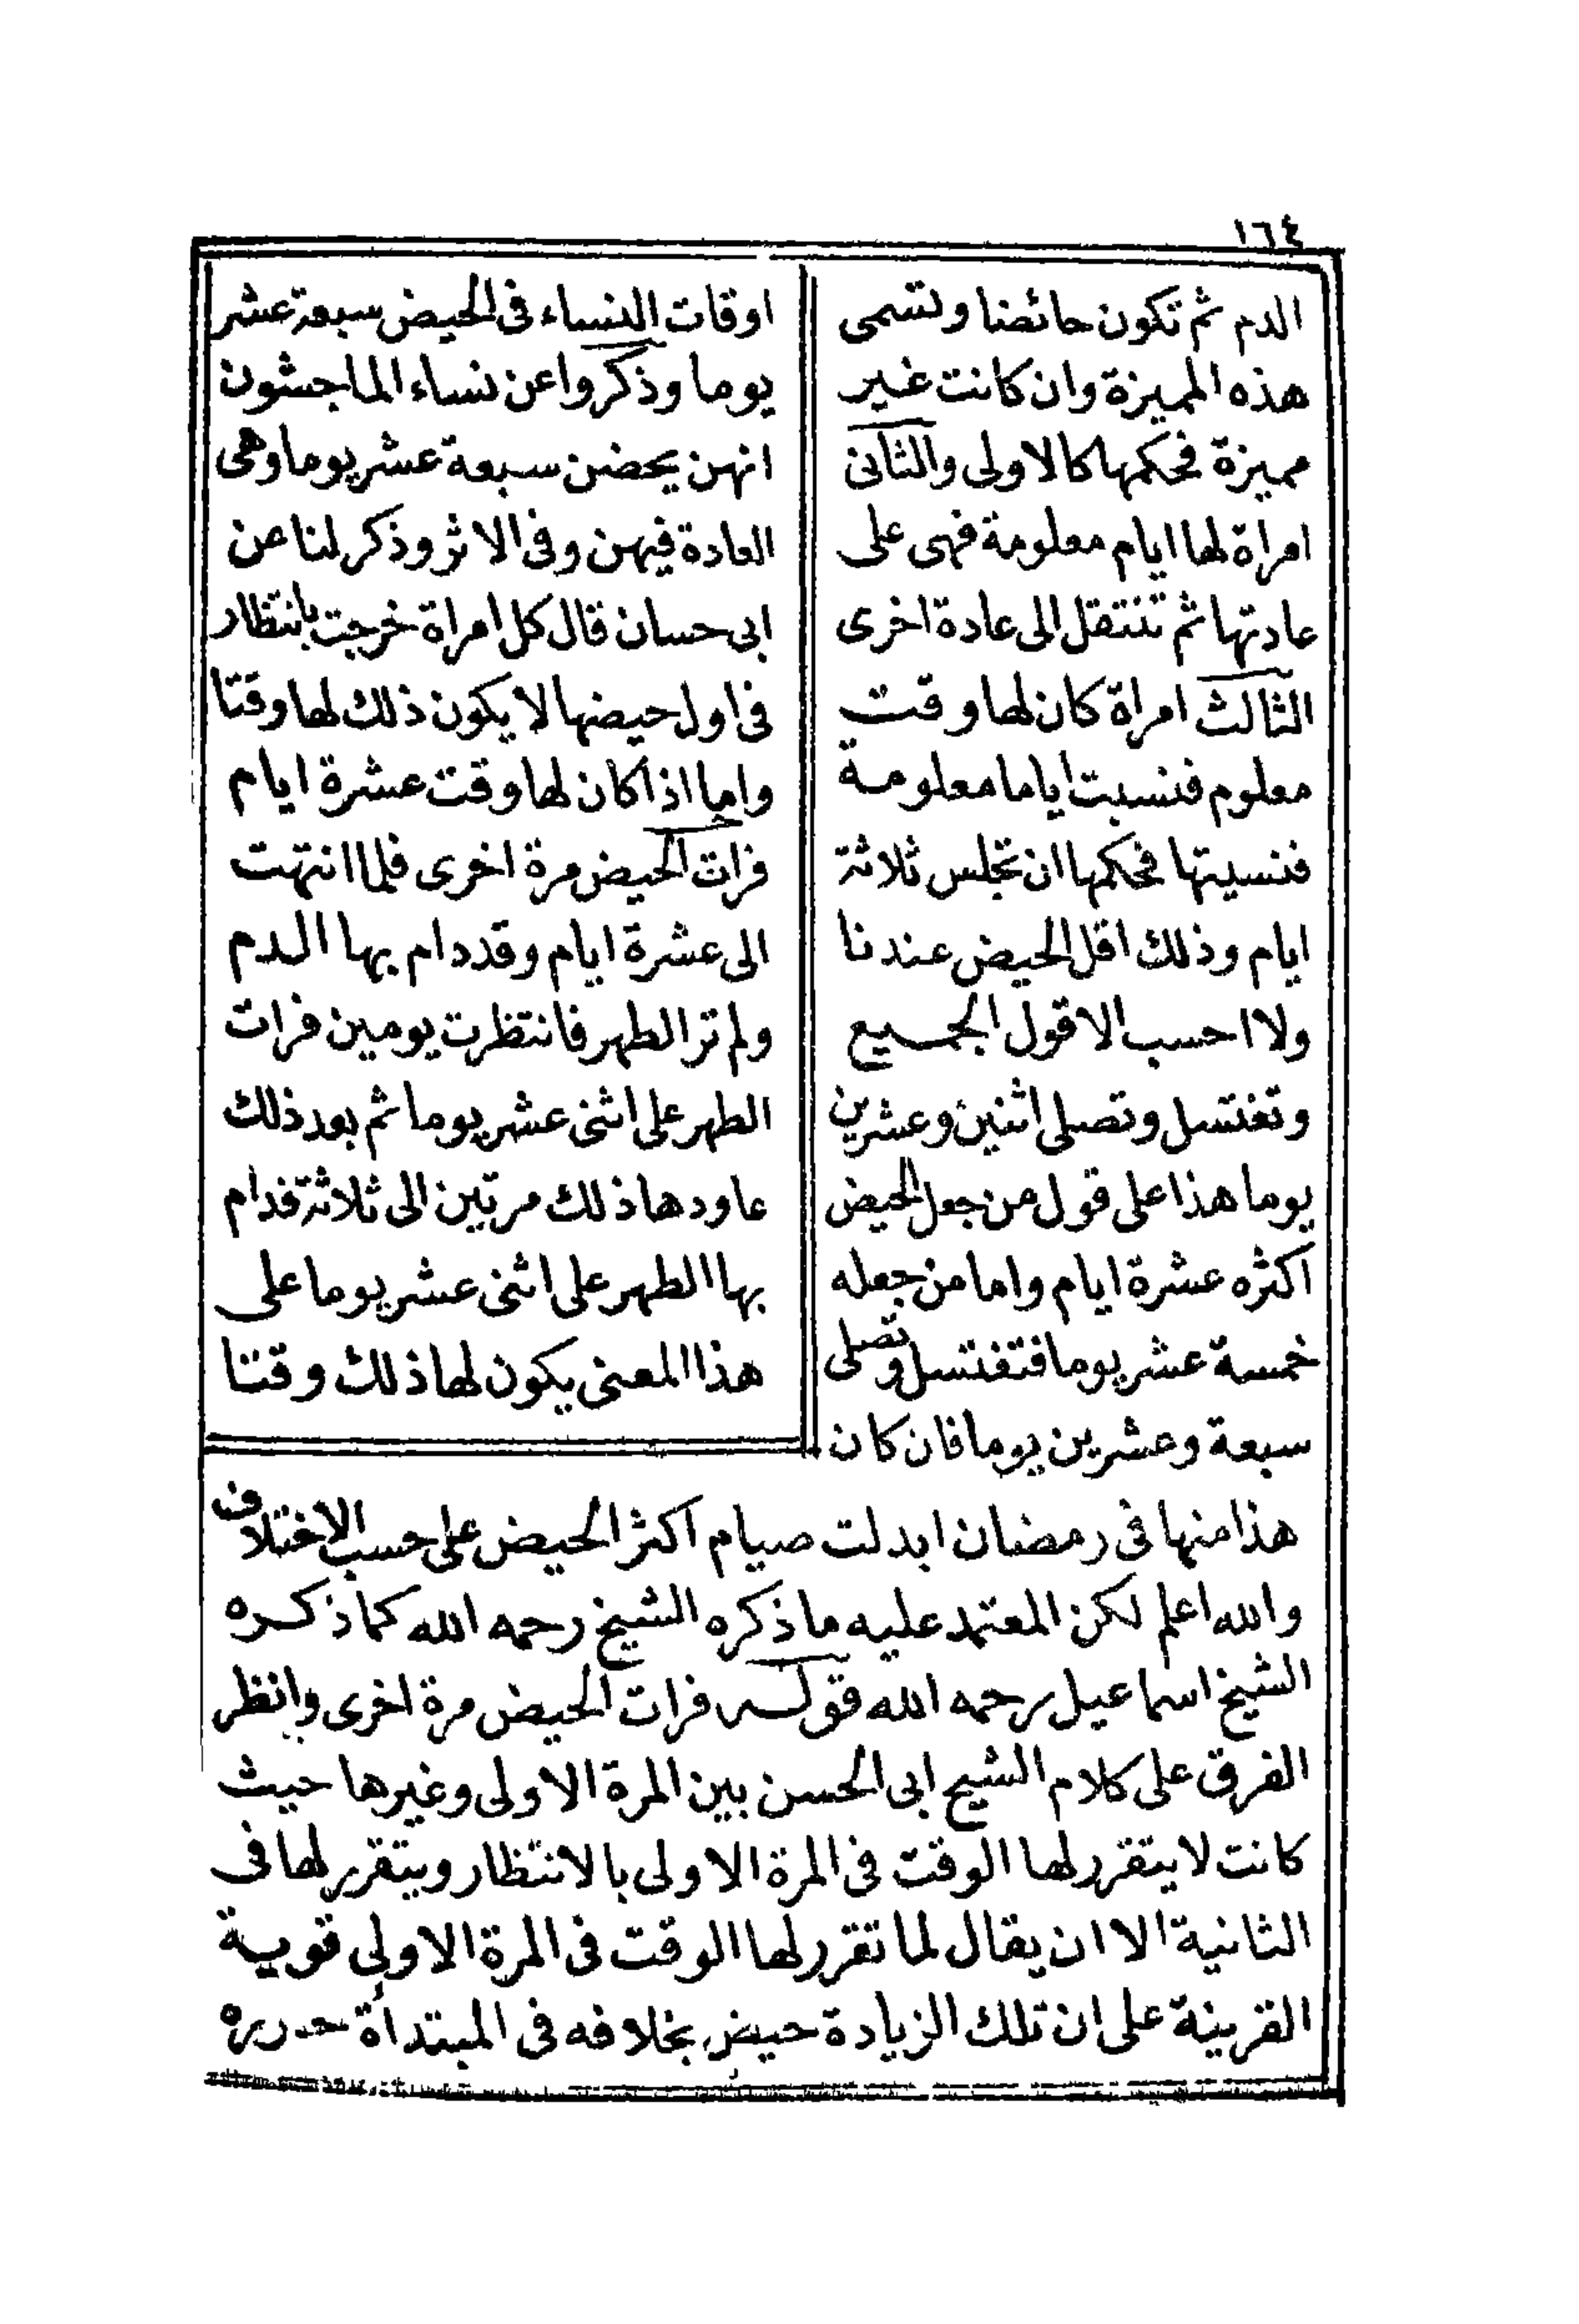 ١٦٤
الدم ثم تكون حائضا وتسمى
هذه المميزة وان كانت غير
مميزة فحكمها كالاولى والثانى
امراة لها ايام معلومة فهى على
عادتها ثم تنتقل الى عادة اخرى
الثالث امراة كان لها وقت
معلوم فنسبت اياما معلومة
فنسيتها فحكمها ان تجلس ثلاثة
ايام وذلك اقل الحيض عندنا
ولا احسب الا قول الجميع
وتغتسل وتصلى اثنين وعشرين
يوما هذا على قول من جعل الحيض
اكثره عشرة ايام واما من جعله
خمسة عشر يوما فتغتسل وتصلى
سبعة وعشرين يوما فان كان
اوقات النساء فى الحيض سبعة عشر
يوما وذكروا عن نساء الماجشون
انهن يحضن سبعة عشر يوما وهى
العادة فيهن وفى الاثر وذكر لنا عن
ابى حسان قال كل امراة خرجت بانتظار
فى اول حيضها لا يكون ذلك لها وقتا
واما اذا كان لها وقت عشرة ايام
فرات الحيض مرة اخرى فلما انتهت
الى عشرة ايام وقد دام بها الدم
ولم تر الطهر فانتظرت يومين فرات
الطهر على اثنى عشر يوما ثم بعد ذلك
عاودها ذلك مرتين الى ثلاثة فدام
بها الطهر على اثنى عشر يوما على
هذا المعنى يكون لها ذلك وقتا
هذا منها فى رمضان ابدلت صيام اكثر الحيض على حسب الاختلاف
والله اعلم لكن المعتمد عليه ما ذكره الشيخ رحمه الله كما ذكره
الشيخ اسماعيل رحمه الله قوله فرات الحيض مرة اخرى وانظر
الفرق على كلام الشيخ ابى الحسن بين المرة الاولى وغيرها حيث
كانت لا يتقرر لها الوقت فى المرة الاولى بالانتظار ويتقرر لها فى
الثانية الا ان يقال لما تقرر لها الوقت فى المرة الاولى قوية
القرينة على ان تلك الزيادة حيض بخلافه فى المبتدأة